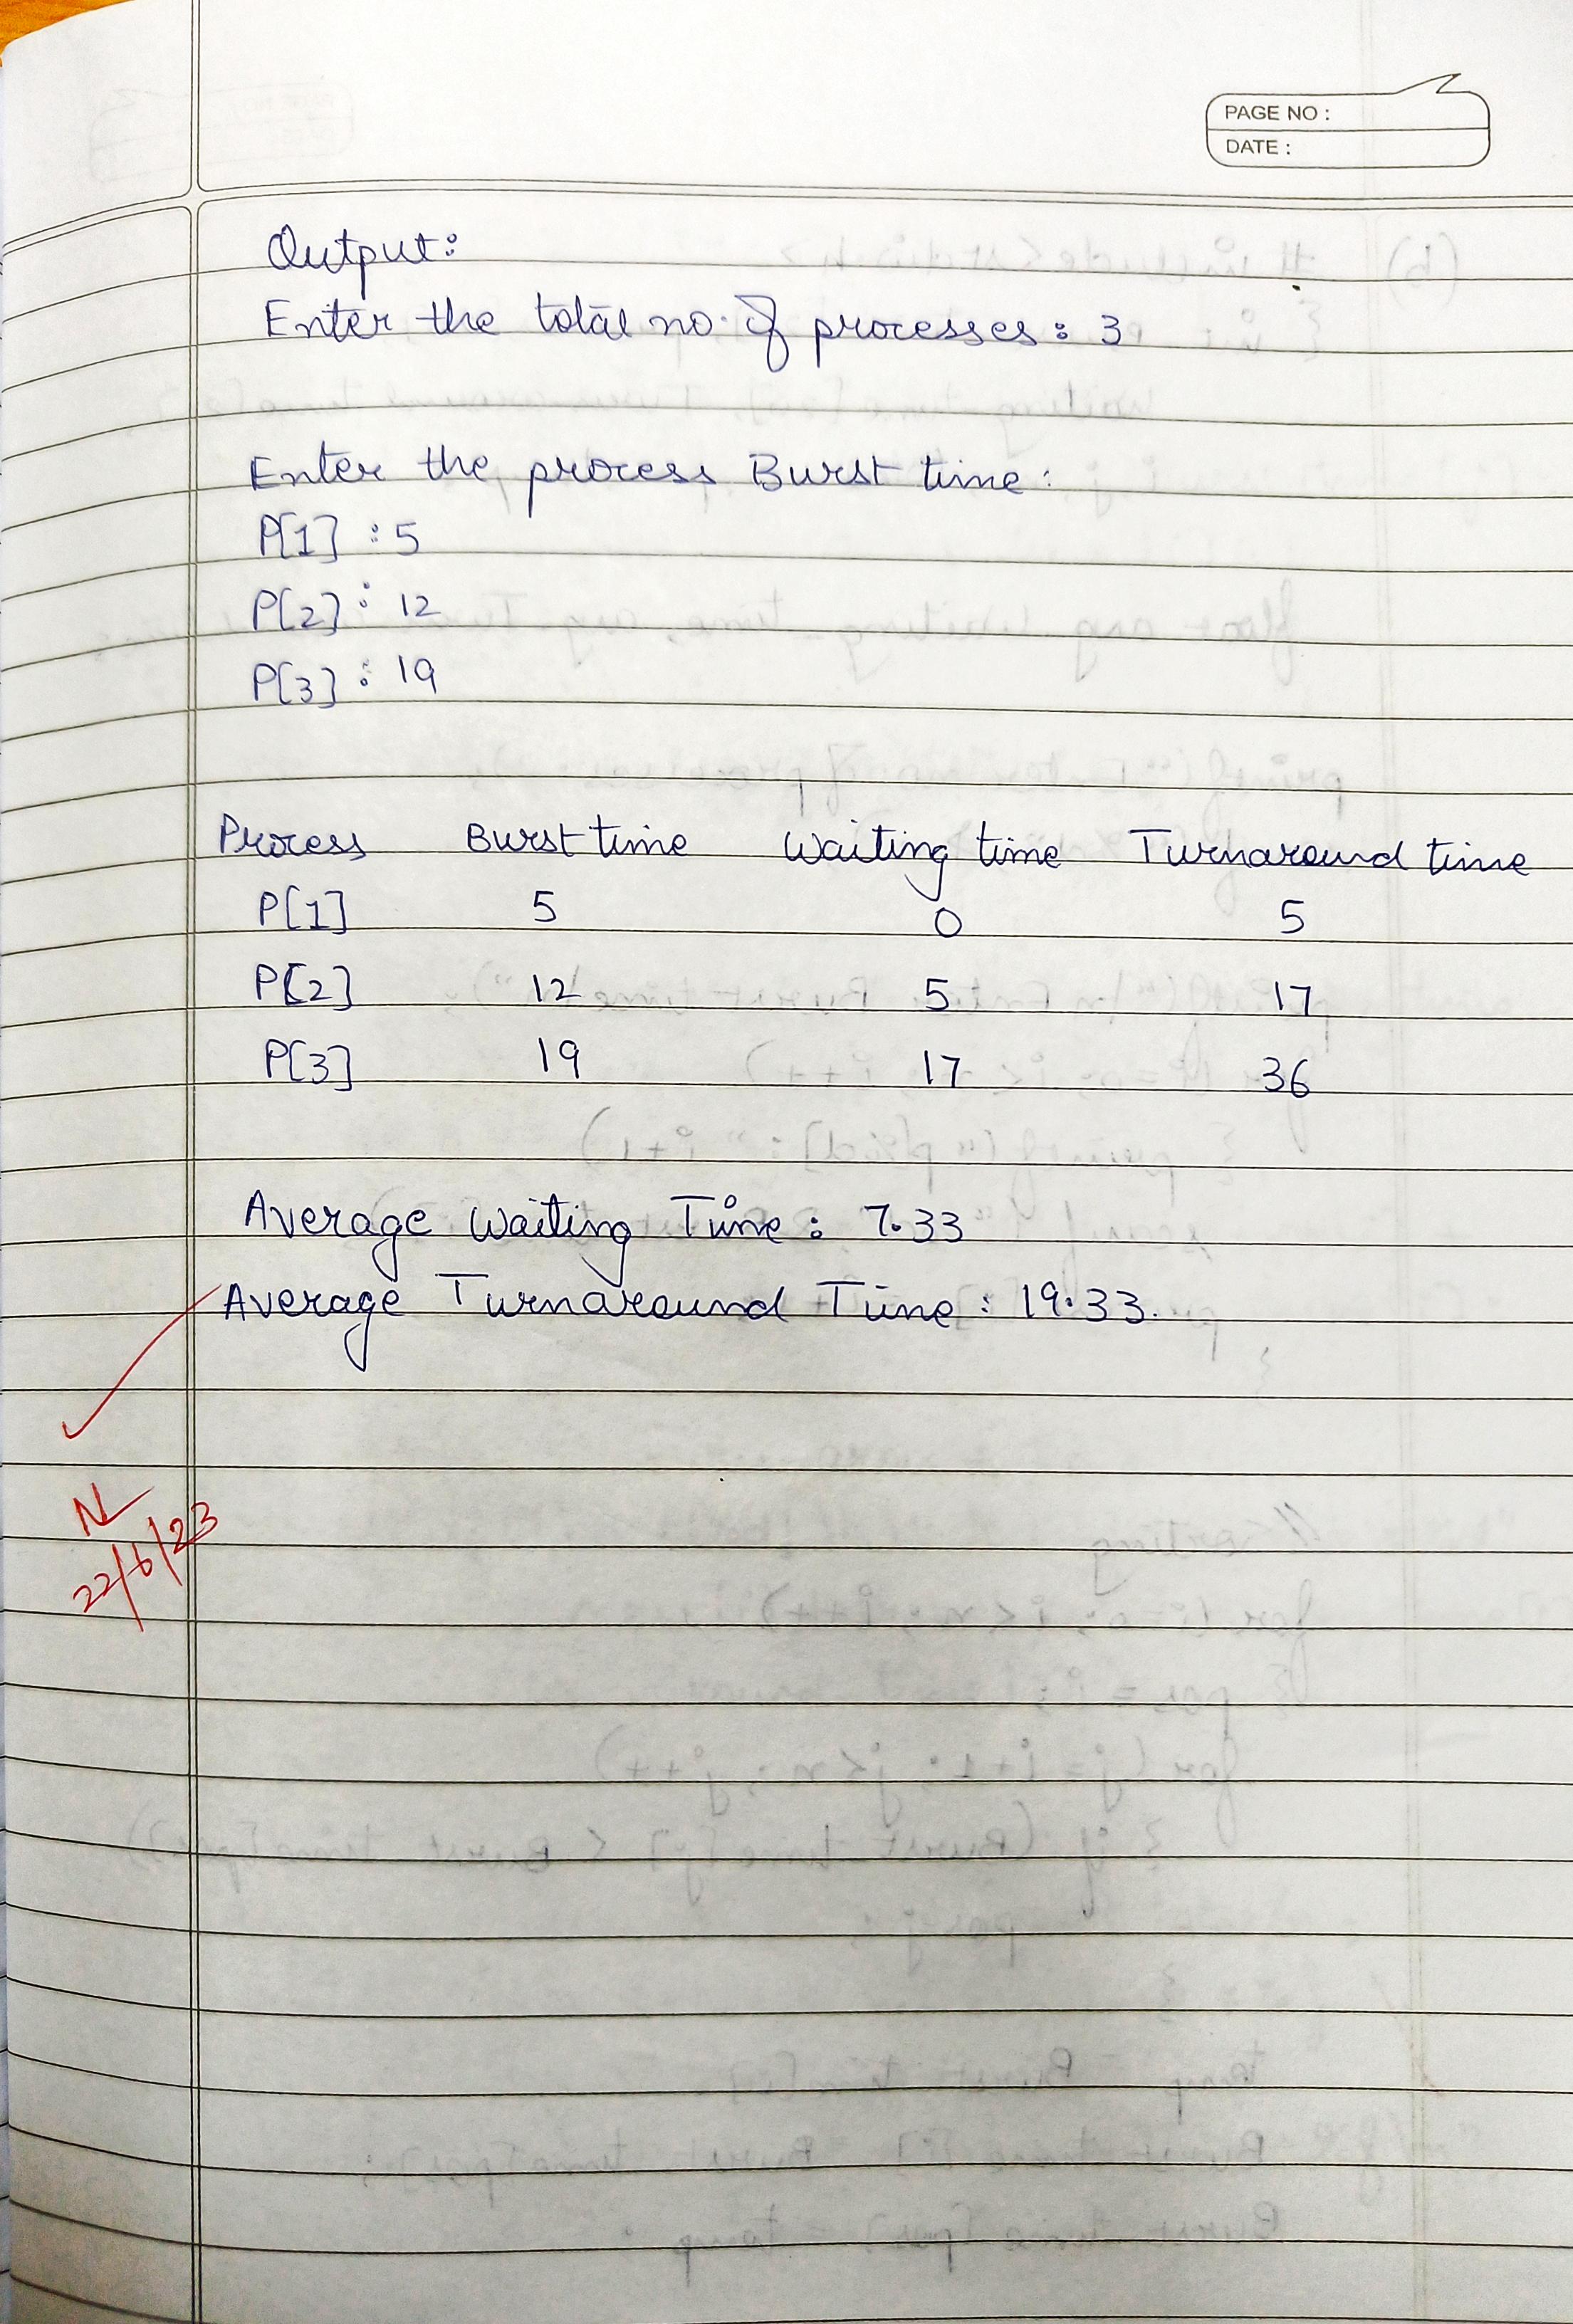 PAGE NO :
DATE :
Output:
Enter the total no. of processes : 3
Enter the process Burst time :
P[1] : 5
P[2] : 12
P[3] : 19
Process Burst time Waiting time Turnaround time
P[1] 5 0 5
P[2] 12 5 17
P[3] 19 17 36
Average Waiting Time : 7.33
Average Turnaround Time : 19.33.
22/6/23